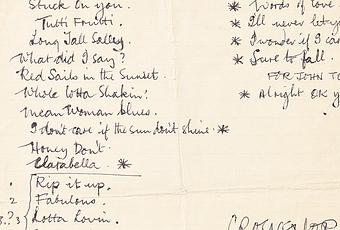 Stuck on you.
Tutti Frutti.
Long Tall Salley.
What did I say?
Red Sails in the Sunset.
Whole lotta Shakin!
Mean Woman blues.
I don't care if the sun don't shine. *
Honey Don't.
Clarabella. *
. Rip it up.
2 Fabulous.
3.?3 Lotta Lovin.
* Words of love
* I'll never let yo
* I wonder if I ca
* Sure to fall.
FOR JOHN TO
* Alright OK y